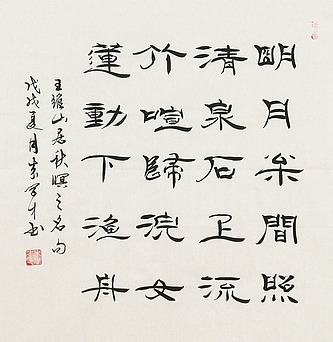 明月松間照
清泉石上流
竹喧歸浣女
蓮動下漁舟
王維山居秋暝之名句
戊戌夏月书